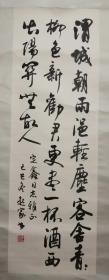 渭城朝雨浥輕塵客舍青青
柳色新勸君更盡一杯酒西
出陽關無故人
同志雅正
己巳冬